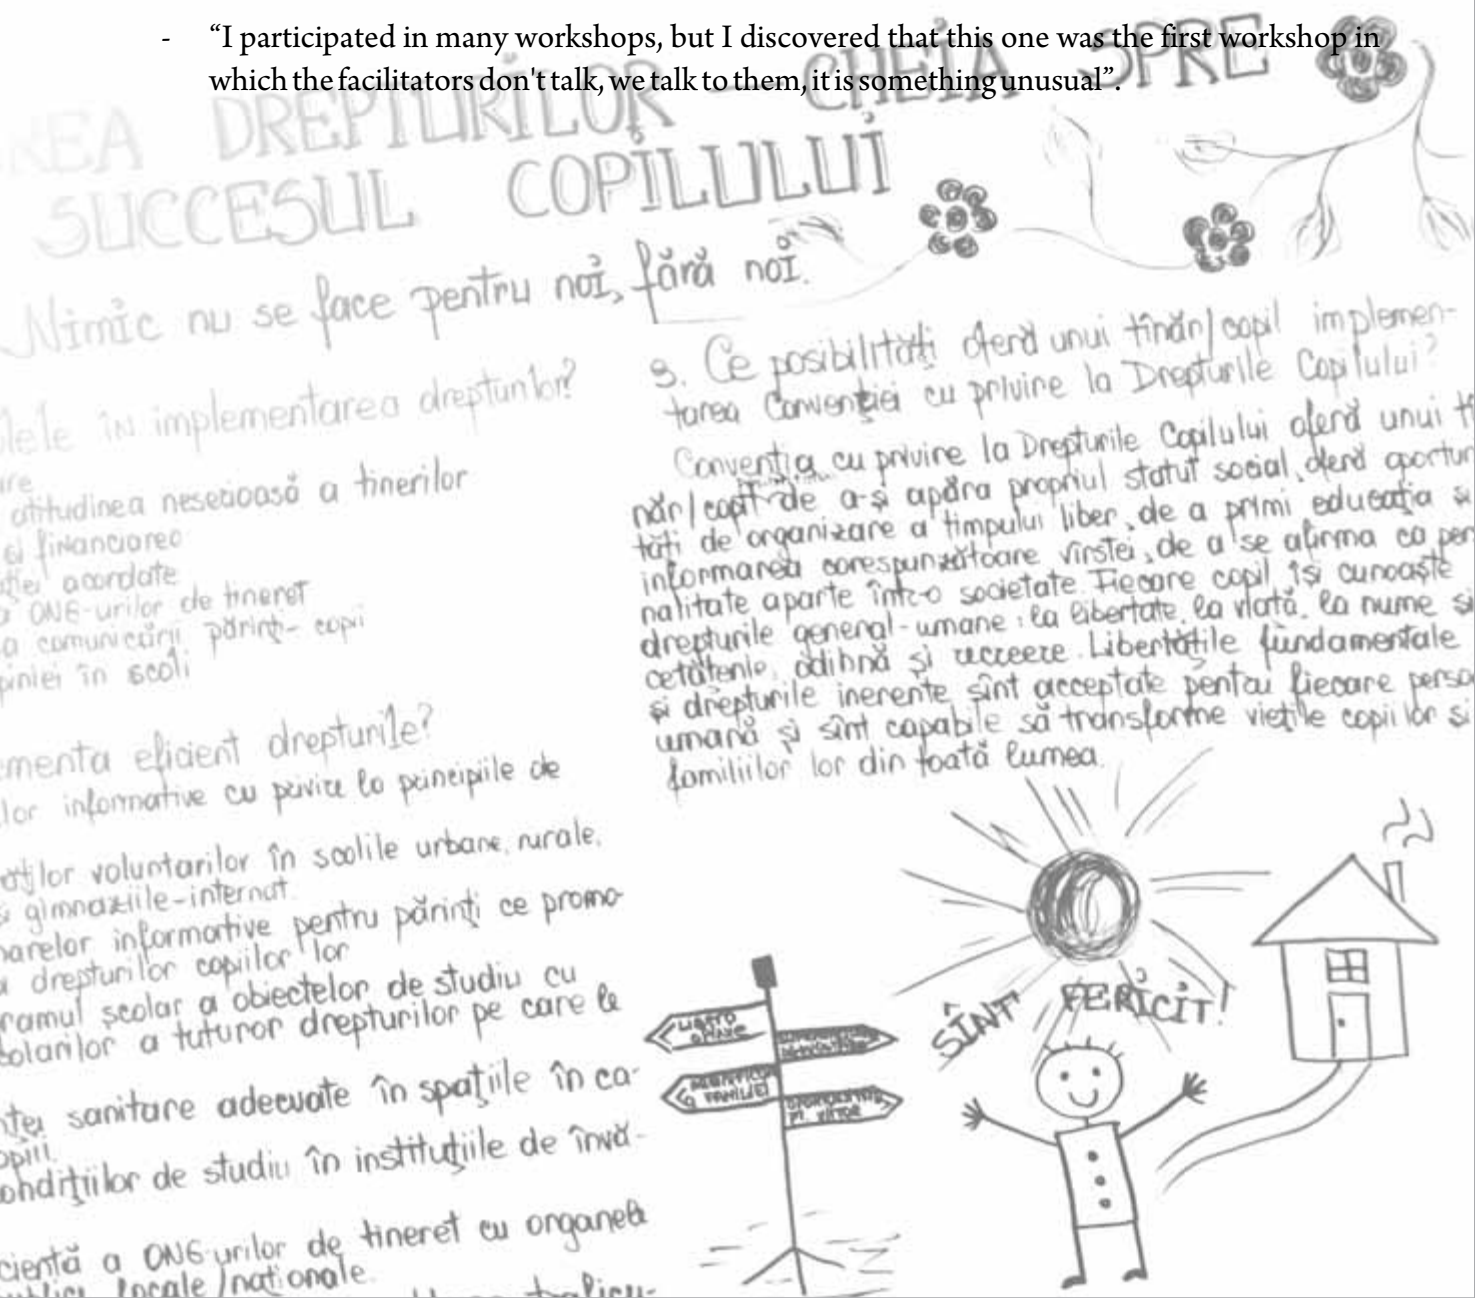 - “I participated in many workshops, but I discovered that this one was the first workshop in
which the facilitators don't talk, we talk to them, it is something unusual”.
REA DREPTURILOR – CHEIA SPRE
SUCCESUL COPILULUI
Nimic nu se face pentru noi, fără noi.
lele în implementarea drepturilor?
are
atitudinea neserioasă a tinerilor
și financiarea
ției acordate
a ONG-urilor de tineret
a comunicării părinți-copii
piniei în școli
ementa eficient drepturile?
lor informative cu privire la principiile de
ăților voluntarilor în școlile urbane, rurale,
și gimnaziile-internat.
narelor informative pentru părinți ce promo-
a drepturilor copiilor lor
ramul școlar a obiectelor de studiu cu
colarilor a tuturor drepturilor pe care le
nței sanitare adecvate în spațiile în ca-
opiii.
ondițiilor de studiu în instituțiile de învă-
cientă a ONG-urilor de tineret cu organele
publici locale/naționale.
3. Ce posibilități oferă unui tînăr/copil implemen-
tarea Convenției cu privire la Drepturile Copilului?
Convenția cu privire la Drepturile Copilului oferă unui tî
năr/copil de a-și apăra propriul statut social, oferă oportun
tăți de organizare a timpului liber, de a primi educația și
informarea corespunzătoare vîrstei, de a se afirma ca per
nalitate aparte într-o societate. Fiecare copil își cunoaște
drepturile general-umane: la libertate, la viață, la nume și
cetățenie, odihnă și Libertățile fundamentale
și drepturile inerente sînt acceptate pentru fiecare perso
umană și sînt capabile să transforme viețile copiilor și
familiilor lor din toată lumea.
SÎNT FERICIT!
FAMILIEI